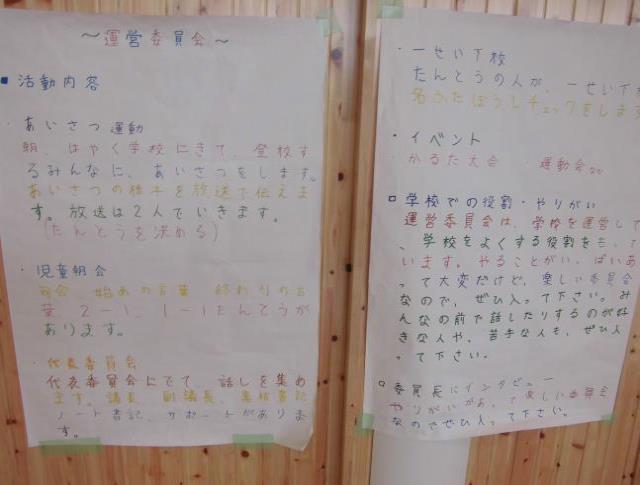 ～運営委員会～
■活動内容
・あいさつ運動
朝、はやく学校にきて、登校す
るみんなに、あいさつをします。
あいさつの様子を放送で伝えま
す。放送は2人でいきます。
(たんとうを決める)
・児童朝会
司会 始めの言葉 終わりの言
葉 2-1、1-1たんとうが
あります。
・代表委員会
代表委員会にでて、話しを集め
ます。議長、副議長、黒板書記
ノート書記、サポートがありま
す。
・一せい下校
たんとうの人が、一せい下
名ふだぼうしチェックをします
・イベント
かるた大会 運動会など
□学校での役割・やりがい
運営委員会は、学校を運営して
、学校をよくする役割をもって
います。やることがいっぱいあ
って大変だけど、楽しい委員会
なので、ぜひ入って下さい。み
んなの前で話したりするのが好
きな人や、苦手な人も、ぜひ入
って下さい。
□委員長にインタビュー
やりがいがあって楽しい委員会
なのでぜひ入って下さい。